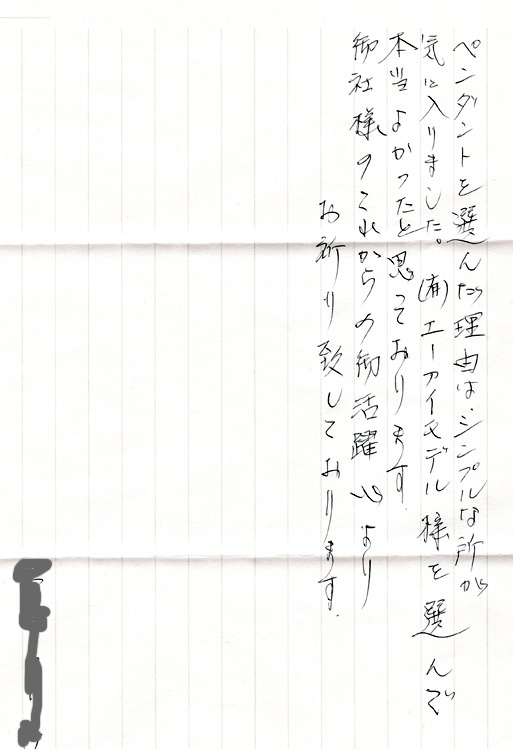 ペンダントを選んだ理由は、シンプルな所が
気に入りました。(有)エーアイモデル様を選んで
本当よかったと思っております。
御社様のこれからの御活躍心より
お祈り致しております。